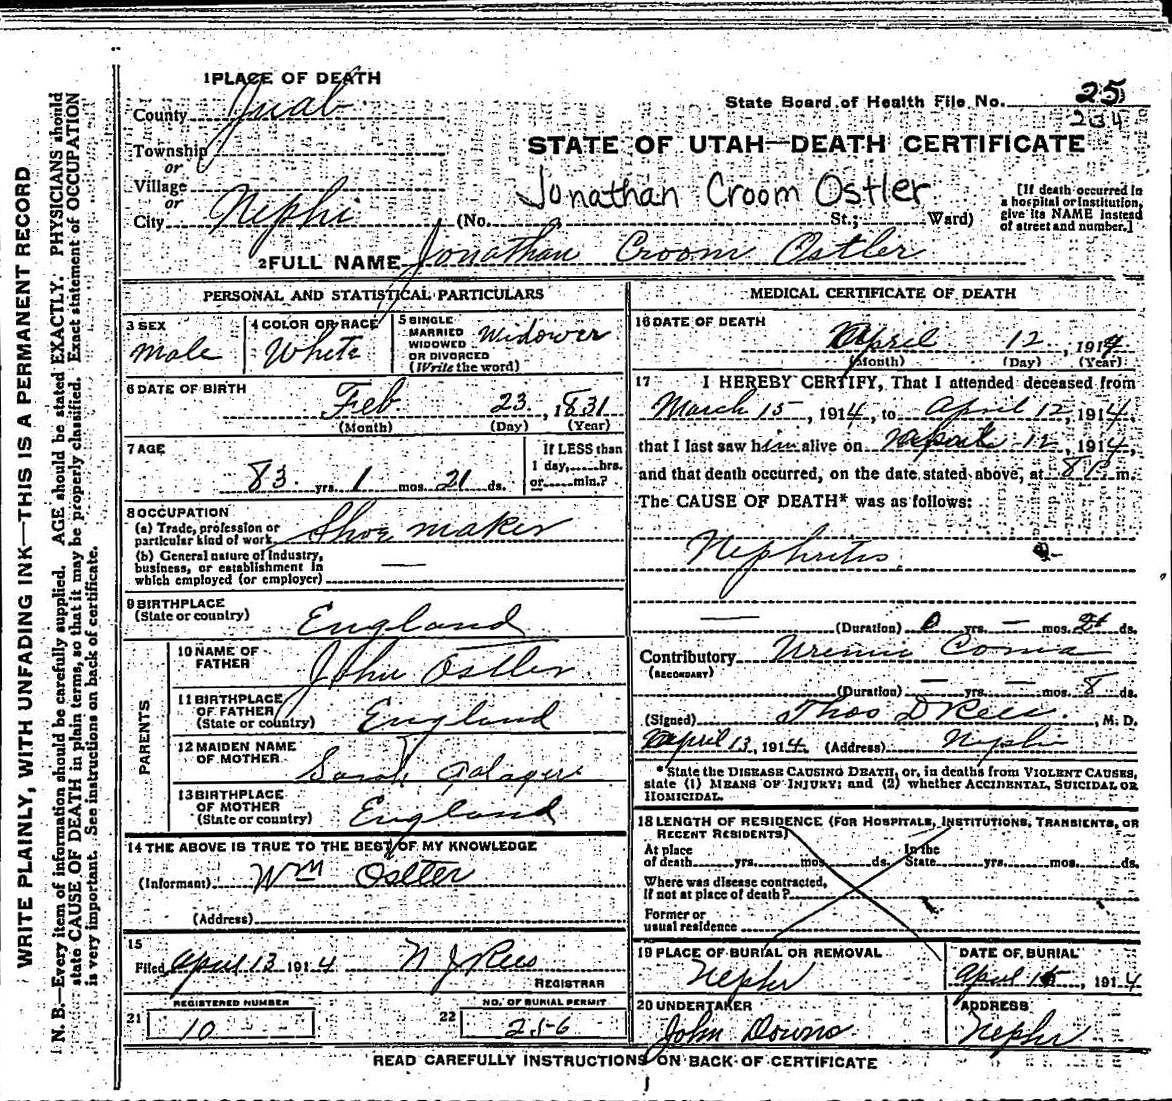 WRITE PLAINLY, WITH UNFADING INK—THIS IS A PERMANENT RECORD
N. B.—Every item of information should be carefully supplied. AGE should be stated EXACTLY. PHYSICIANS should
state CAUSE OF DEATH in plain terms, so that it may be properly classified. Exact statement of OCCUPATION
is very important. See instructions on back of certificate.
1 PLACE OF DEATH
County Juab
Township
or
Village
or
City Nephi
State Board of Health File No. 25
234
STATE OF UTAH—DEATH CERTIFICATE
Jonathan Croom Ostler
(No. St.; Ward)
[If death occurred in
a hospital or institution,
give its NAME instead
of street and number.]
2 FULL NAME Jonathan Croom Ostler
PERSONAL AND STATISTICAL PARTICULARS
3 SEX
Male
4 COLOR OR RACE
White
5 SINGLE
MARRIED
WIDOWED
OR DIVORCED
(Write the word)
Widower
6 DATE OF BIRTH
Feb. 23, 1831
(Month) (Day) (Year)
7 AGE
83 yrs. 1 mos. 21 ds.
If LESS than
1 day, hrs.
or min.?
8 OCCUPATION
(a) Trade, profession or
particular kind of work Shoe maker
(b) General nature of industry,
business, or establishment in
which employed (or employer) —
9 BIRTHPLACE
(State or country) England
PARENTS
10 NAME OF
FATHER John Ostler
11 BIRTHPLACE
OF FATHER
(State or country) England
12 MAIDEN NAME
OF MOTHER Sarah
13 BIRTHPLACE
OF MOTHER
(State or country) England
14 THE ABOVE IS TRUE TO THE BEST OF MY KNOWLEDGE
(Informant) Wm Ostler
(Address)
15
Filed April 13 1914 N J Rees
REGISTRAR
21 REGISTERED NUMBER
10
22 NO. OF BURIAL PERMIT
256
MEDICAL CERTIFICATE OF DEATH
16 DATE OF DEATH
April 12, 1914
(Month) (Day) (Year)
17 I HEREBY CERTIFY, That I attended deceased from
March 15, 1914, to April 12, 1914,
that I last saw him alive on April 12, 1914,
and that death occurred, on the date stated above, at 8 P m.
The CAUSE OF DEATH* was as follows:
Nephritis
(Duration) yrs. — mos. ds.
Contributory Uremic Coma
(SECONDARY)
(Duration) — yrs. — mos. 8 ds.
(Signed) Thos D Rees, M. D.
April 13, 1914. (Address) Nephi
*State the DISEASE CAUSING DEATH, or, in deaths from VIOLENT CAUSES,
state (1) MEANS OF INJURY; and (2) whether ACCIDENTAL, SUICIDAL OR
HOMICIDAL.
18 LENGTH OF RESIDENCE (FOR HOSPITALS, INSTITUTIONS, TRANSIENTS, OR
RECENT RESIDENTS)
At place
of death yrs. mos. ds.
In the
State yrs. mos. ds.
Where was disease contracted,
if not at place of death?
Former or
usual residence
19 PLACE OF BURIAL OR REMOVAL
Nephi
DATE OF BURIAL
April 15, 1914
20 UNDERTAKER
John Downs
ADDRESS
Nephi
READ CAREFULLY INSTRUCTIONS ON BACK OF CERTIFICATE